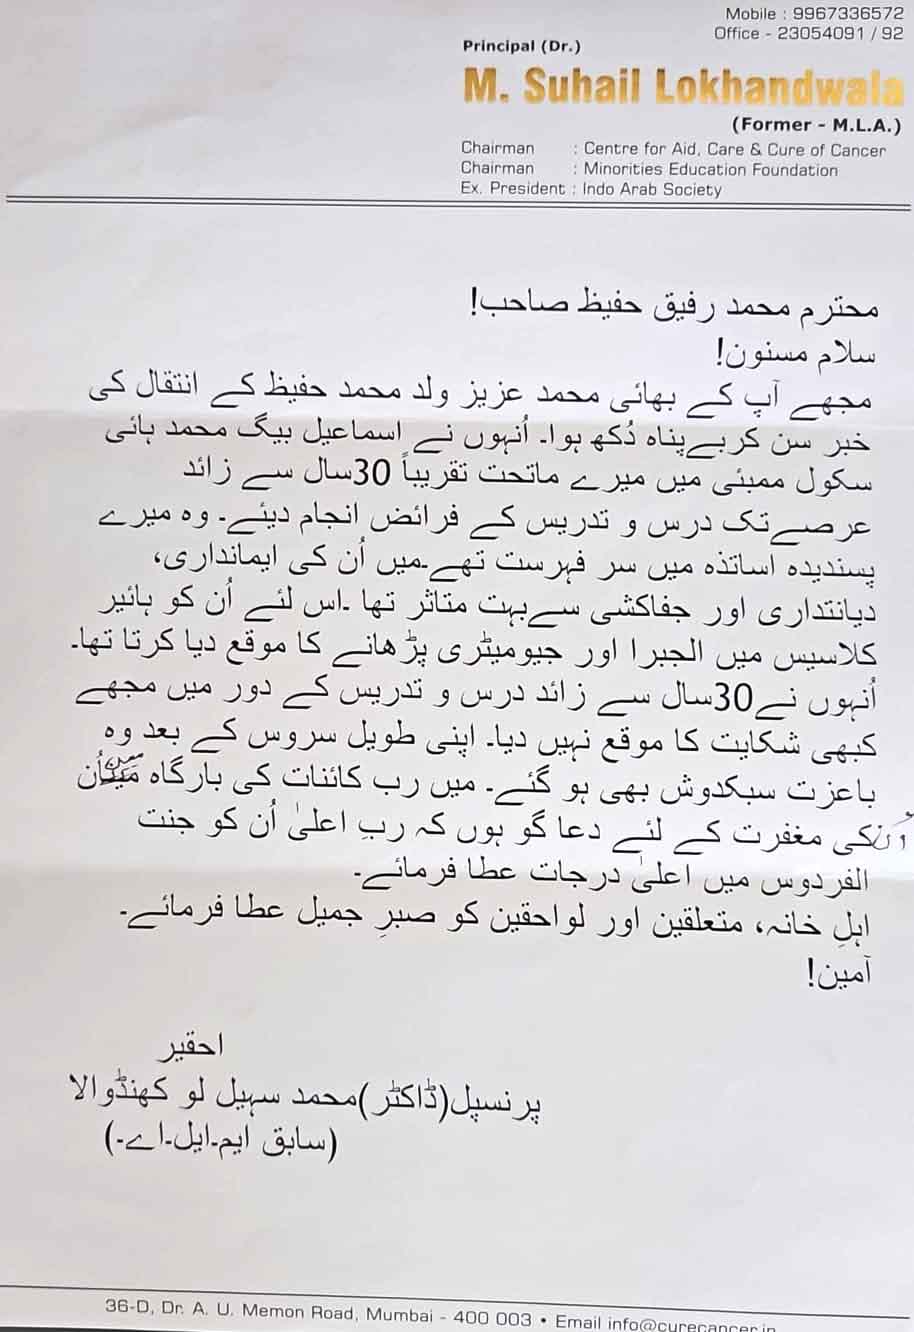 Mobile : 9967336572
Office - 23054091 / 92
Principal (Dr.)
M. Suhail Lokhandwala
(Former - M.L.A.)
Chairman : Centre for Aid, Care & Cure of Cancer
Chairman : Minorities Education Foundation
Ex. President : Indo Arab Society
محترم محمد رفیق حفیظ صاحب!
سلام مسنون!
مجھے آپ کے بھائی محمد عزیز ولد محمد حفیظ کے انتقال کی
خبر سن کر بےپناہ دُکھ ہوا۔ اُنہوں نے اسماعیل بیگ محمد ہائی
سکول ممبئی میں میرے ماتحت تقریباً 30سال سے زائد
عرصے تک درس و تدریس کے فرائض انجام دیئے۔ وہ میرے
پسندیدہ اساتذہ میں سر فہرست تھے۔میں اُن کی ایمانداری،
دیانتداری اور جفاکشی سےبہت متاثر تھا ۔اس لئے اُن کو ہائیر
کلاسیس میں الجبرا اور جیومیٹری پڑھانے کا موقع دیا کرتا تھا۔
اُنہوں نے30سال سے زائد درس و تدریس کے دور میں مجھے
کبھی شکایت کا موقع نہیں دیا۔ اپنی طویل سروس کے بعد وہ
باعزت سبکدوش بھی ہو گئے۔ میں رب کائنات کی بارگاہ میں
اُن کی مغفرت کے لئے دعا گو ہوں کہ ربِ اعلیٰ اُن کو جنت
الفردوس میں اعلیٰ درجات عطا فرمائے۔
اہلِ خانہ، متعلقین اور لواحقین کو صبرِ جمیل عطا فرمائے۔
آمین!
احقیر
پرنسپل(ڈاکٹر)محمد سہیل لو کھنڈوالا
(سابق ایم۔ایل۔اے۔)
36-D, Dr. A. U. Memon Road, Mumbai - 400 003 • Email info@curecancer.in